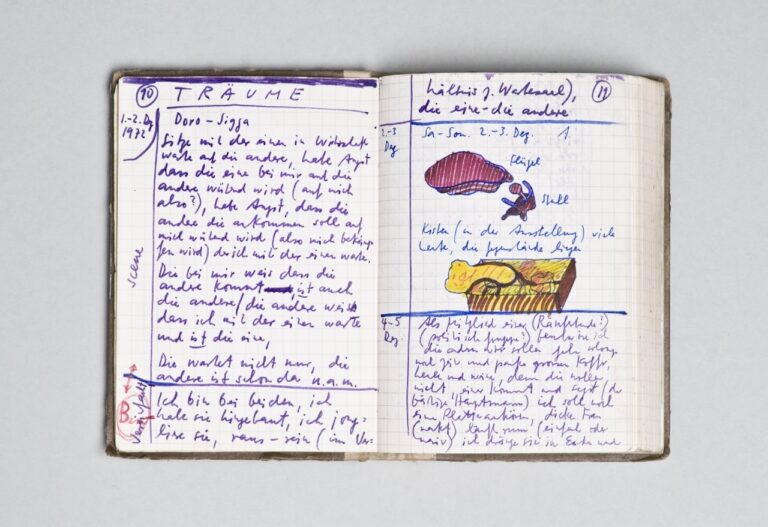 10
TRÄUME
1.-2. Dez
1972
Doro-Sigga
Sitze mit der einen in Wirtschaft
warte auf die andere, habe Angst
dass die eine bei mir auf die
andere wütend wird (auf mich
also?), habe Angst, dass die
andere die ankommen soll auf
mich wütend wird (also mich
wird) der ich mit der einen warte.
Die bei mir weis dass die
andere kommt ist auch
die andere/die andere weis
dass ich mit der einen warte
und ist die eine,
Die wartet nicht nur, die
andere ist schon da u.a.m.
Scene
Ich bin bei beiden, ich
habe sie hingebaut, ich jong-
liere sie, raus-rein (im Ver-
B
11
hältnis z. Wartesaal),
die eine-die andere.
2.-3
Dez
Sa-Son. 2.-3. Dez. 1
Flügel
Stuhl
Kisten (in der Ausstellung) viele
Leute, die liegen
4-5
Dez.
Als Mitglied einer
(politisch Gruppe?)
die andern wir sollen
grossen Koffer,
Leute und denn die wollen
nicht, einer kommt und sagt (der
Hauptmann) ich soll mal
eine dicke Frau
(nackt) läuft rum (einfach oder
naiv) ich dränge sie in Ecke und